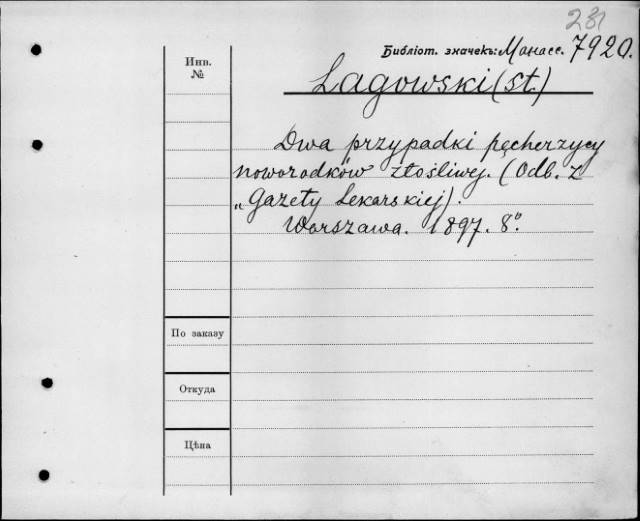 231
Библіот. значекъ: Манасс. 7920.
Инв.
№
Lagowski (St.)
Dwa przypadki pęcherzycy
noworodków złośliwej. (Odb. z
„Gazety Lekarskiej).
Warszawa. 1897. 8°.
По заказу
Откуда
Цѣна